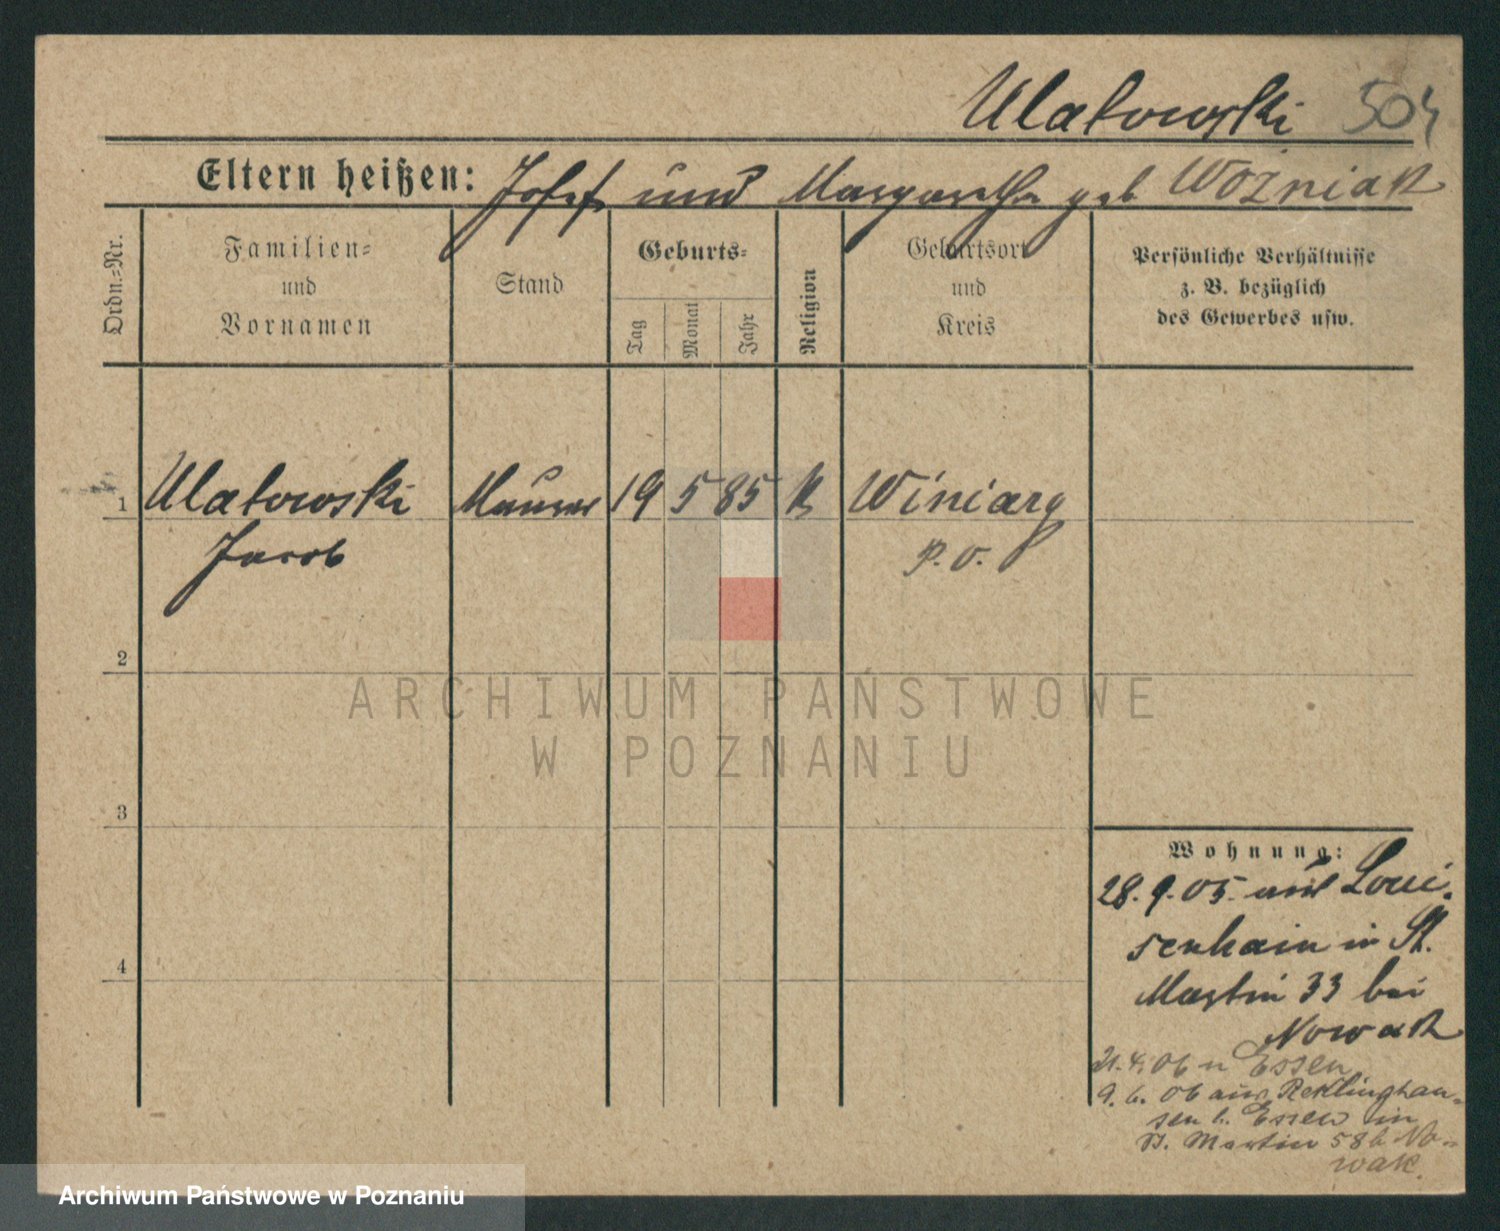 Ulatowski 504
Eltern heißen: Josef und Margarethe geb Woźniak
Ordn.=Nr.
Familien=
und
Vornamen
Stand
Geburts=
Tag
Monat
Jahr
Religion
Geburtsort
und
Kreis
Persönliche Verhältnisse
z. B. bezüglich
des Gewerbes usw.
1 Ulatowski Maurer 19 5 85 K Winiary
Jacob P. O.
2
ARCHIWUM PAŃSTWOWE
W POZNANIU
3
Wohnung:
28. 9. 05. aus Loui-
senhain in St.
4
Martin 33 bei
Nowak
21. 4. 06 n Essen
9. 6. 06 aus Recklinghau-
sen b. Essen in
St. Martin 58 b. No-
wak.
Archiwum Państwowe w Poznaniu